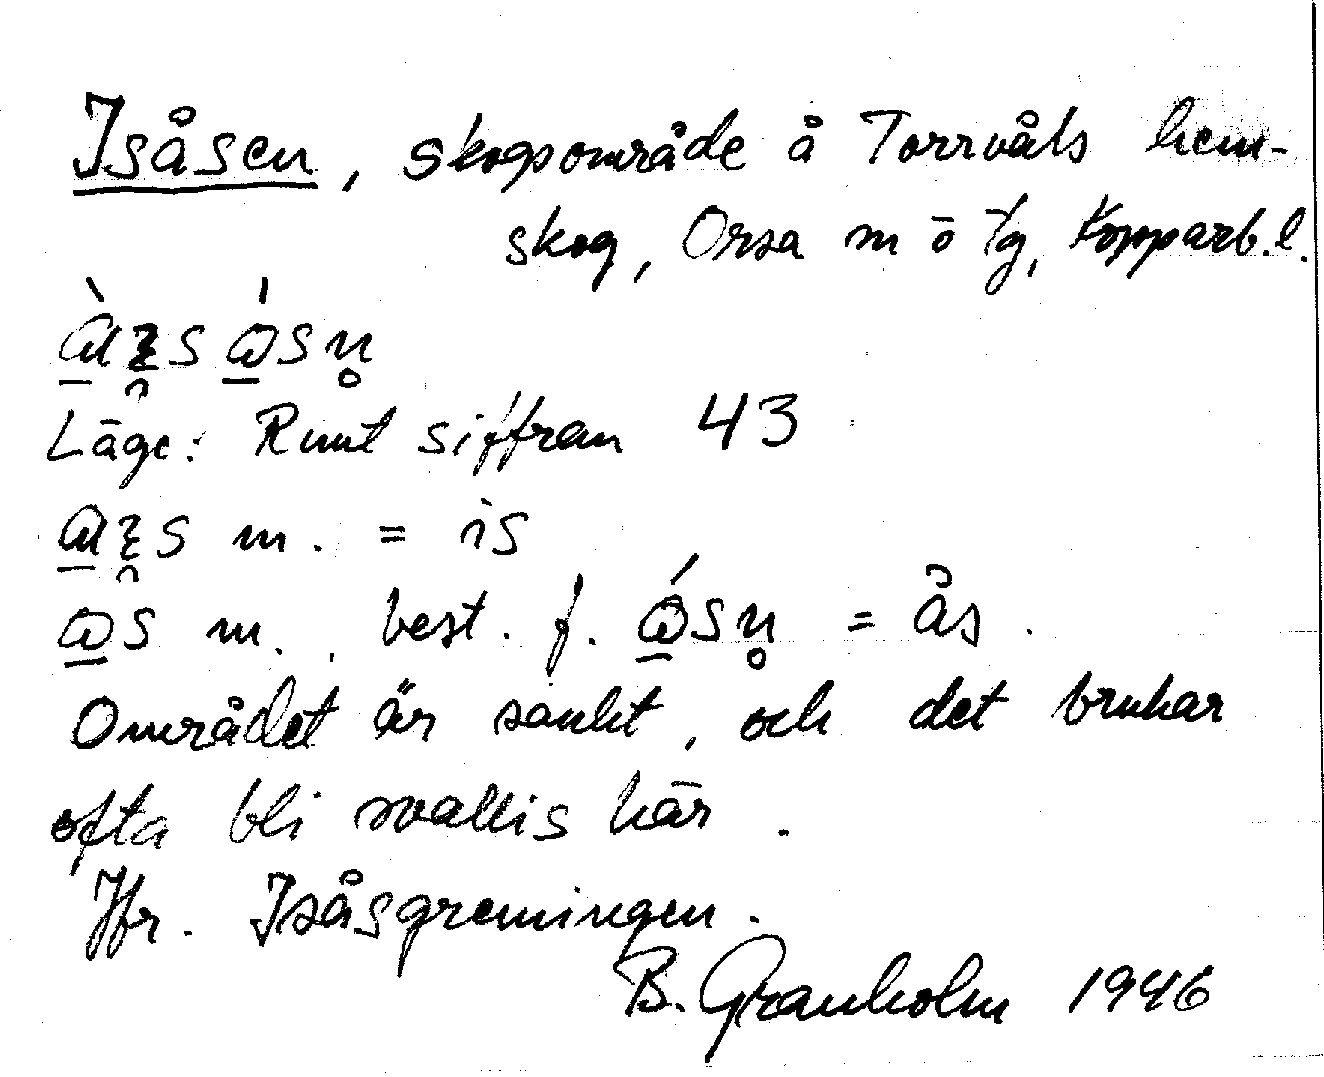 Isåsen, skogsområde å Torrvåls hem-
skog, Orsa m o tg, Kopparb. l.
Läge: Runt siffran 43
m. = is
m. best. f. = ås.
Området är sankt, och det brukar
ofta bli svallis här.
Jfr. Isåsgreningen.
B. Granholm 1946